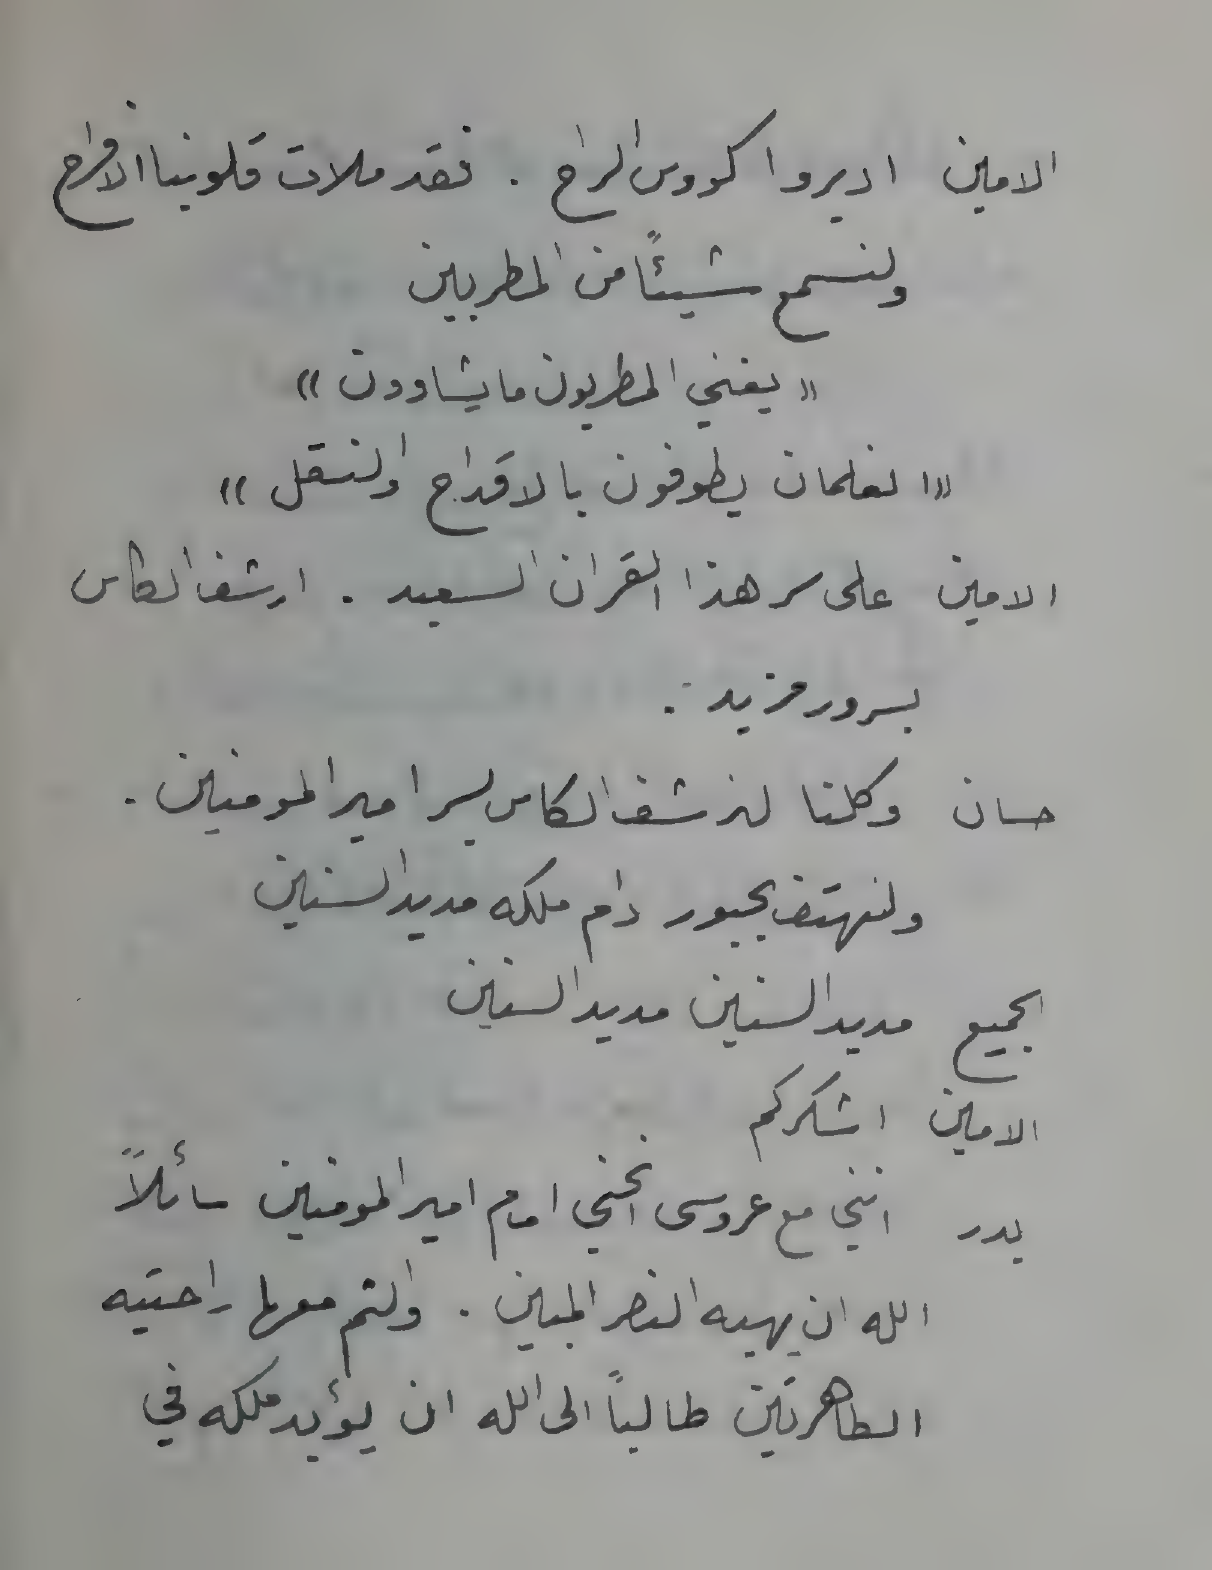 الامين اديروا كووس الراح . فقد ملات قلوبنا الافراح
ولنسمع شيئًا من المطربين
« يغني المطربون ما يشاوون »
« الغلمان يطوفون بالاقداح والنقل »
الامين على سر هذا القران السعيد . ارشف الكاس
بسرور مزيد .
حسان وكلنا لنرشف الكاس لسر امير المومنين .
ولنهتف بحبور دام ملكه مديد السنين
الجميع مديد السنين مديد السنين
الامين اشكركم
بدر انني مع عروسى انحني امام امير المومنين سائلاً
الله ان يهبه النصر المبين . والثم معها راحتيه
الطاهرتين طالباً الى الله ان يؤيد ملكه في